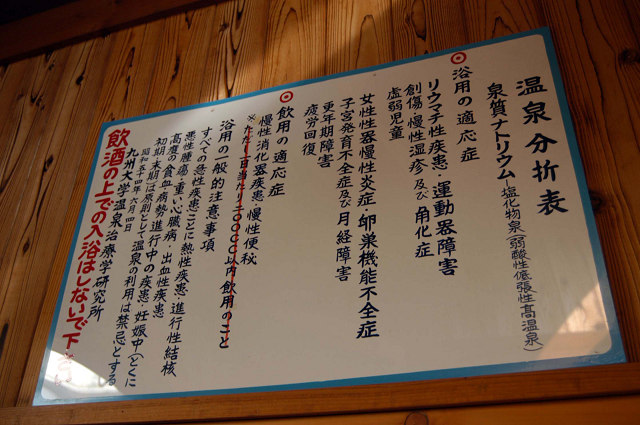 温泉分析表
泉質ナトリウム―塩化物泉(弱酸性低張性高温泉)
◎浴用の適応症
リウマチ性疾患・運動器障害
創傷・慢性湿疹及び角化症
虚弱児童
女性性器慢性炎症・卵巣機能不全症
子宮発育不全症及び月経障害
更年期障害
疲労回復
◎飲用の適応症
慢性消化器疾患・慢性便秘
※ただし一日当たり一〇〇〇cc以内飲用のこと
浴用の一般的注意事項
すべての急性疾患(ことに熱性疾患・進行性結核
悪性腫瘍・重い心臓病・出血性疾患
高度の貧血・病勢進行中の疾患・妊娠中(とくに
初期・末期)は原則として温泉の利用は禁忌とする
昭和三十四年六月四日
九州大学温泉治療学研究所
飲酒の上での入浴はしないで下